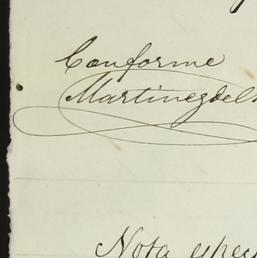 Conforme
Martinez del
Nota espec